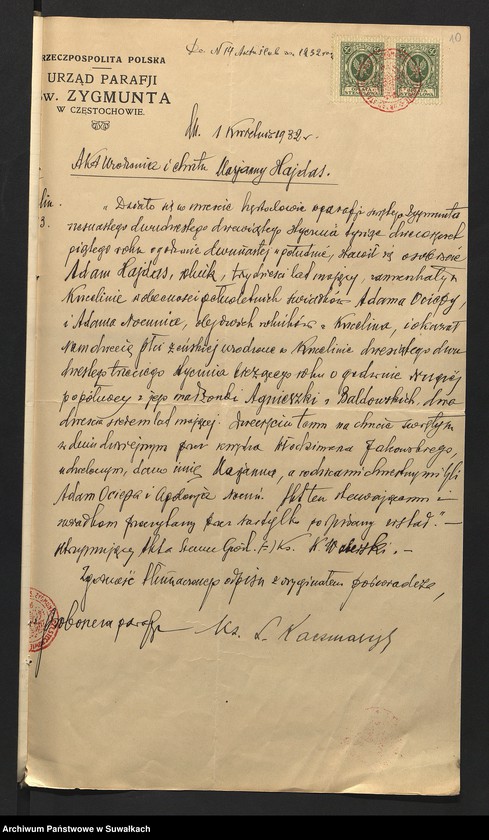 Do N 14 Aktu ślub. r. 1932
10
RZECZPOSPOLITA POLSKA
URZĄD PARAFJI
ŚW. ZYGMUNTA
W CZĘSTOCHOWIE.
1 Kwietnia 1932 r.
Akt Urodzenia i chrztu Marjanny Hajdas.
3.
"Działo się w mieście Częstochowie w parafji świętego Zygmunta
dwudziestego dziewiątego stycznia tysiąc dziewięćset
piątego roku o godzinie dwunastej w południe, stawił się osobiście
Adam Hajdas, rolnik, trzydzieści lat mający, zamieszkały w
Kucelinie w obecności pełnoletnich świadków Adama Ociepy,
i Adama Nocunia, obydwóch rolników z Kucelina, i okazał
nam dziecię płci żeńskiej urodzone w Kucelinie dwudziestego
trzeciego stycznia bieżącego roku o godzinie drugiej
po północy z jego małżonki Agnieszki z Bałdowskich, dwa
dzieścia siedem lat mającej. Dziecięciu temu na chrzcie świętym
w dniu dzisiejszym przez księdza Włodzimierza Jakowskiego,
udzielonym, dano imię Marjanna, a rodzicami chrzestnymi byli
Adam Ociepa i Nocuń. Akt ten stawającemu i
świadkom przeczytany przez nas tylko podpisany został." —
Utrzymujący Akta Stanu Cywil. /-/ Ks. K.
Zgodność tłumaczonego odpisu z oryginałem poświadcza,
Proboszcz parafji Ks. L. Kaczmarczyk
Archiwum Państwowe w Suwałkach